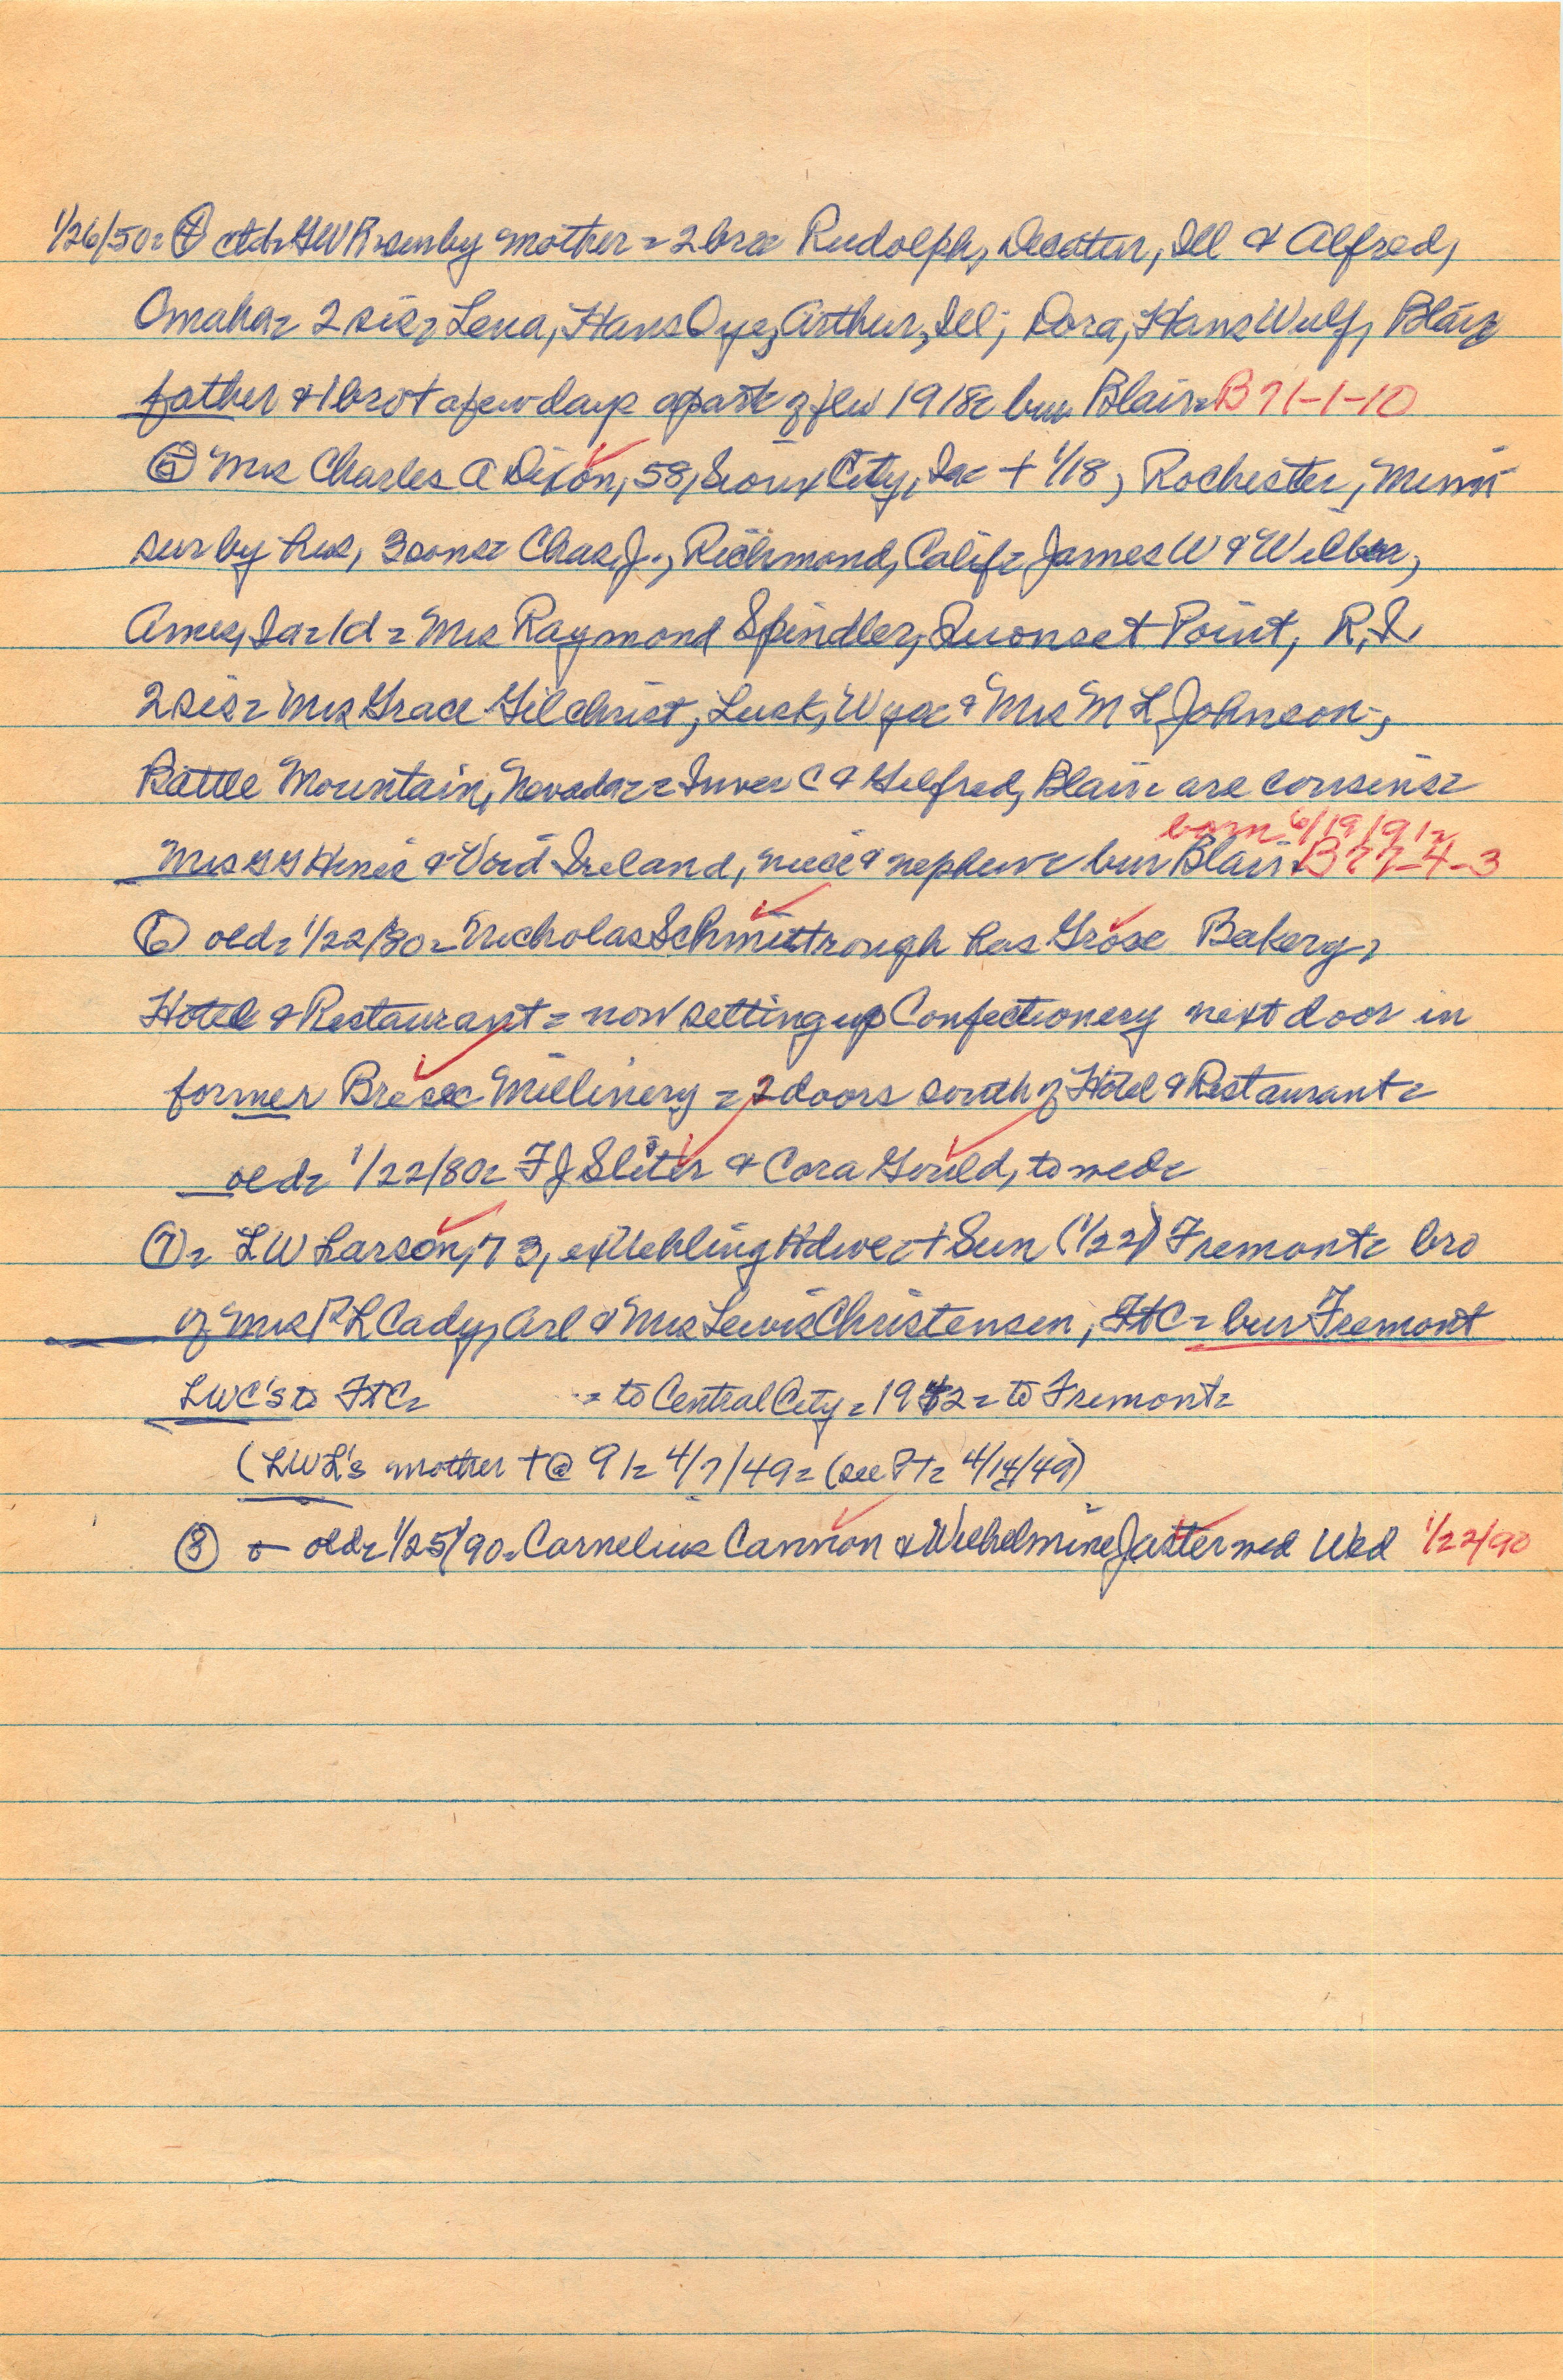 1/26/50= ④ ctd= GWR= sur by mother = 2 bros Rudolph, Decatur, Ill & Alfred,
Omaha= 2 sis= Lena, Hans Oye, Arthur, Ill; Dora, Hans Wulf, Blair=
father & 1 bro + a few days apart of flu 1918= bur Blair= B 71-1-10
⑤ Mrs Charles A Dixon, 58, Sioux City, Ia= + 1/18, Rochester, Minn=
sur by hus, 3 sons= Chas Jr., Richmond, Calif= James W & Wilber,
Ames, Ia= 1 d = Mrs Raymond Spindler, Quonset Point, R.I.
2 sis= Mrs Grace Gilchrist, Lusk, Wyo= & Mrs M L Johnson,
Battle Mountain, Nevada= = C & Gilfred, Blair= are cousins=
born 6/19/91=
Mrs & Ireland, niece & nephew= bur Blair= B 27-4-3
⑥ old= 1/22/80= Nicholas Schmittrough has Grose Bakery,
Hotel & Restaurant = now setting up Confectionery next door in
former Millinery = 2 doors south of Hotel & Restaurant=
old= 1/22/80= F J Sliter & Cora Gould, to wed=
⑦= L W Larson, 73, ex Uehling Hdwe= + Sun (1/22) Fremont= bro
of Mrs R L Cady, Arl & Mrs Lewis Christensen, FtC = bur Fremont
LWC's to FtC= = to Central City = 1942 = to Fremont=
(LWL's mother + @ 91= 4/7/49= (see Pt= 4/14/49)
⑧ old= 1/25/90= Cornelius Cannon & Wilhelmine Jatter wed Wed 1/22/90